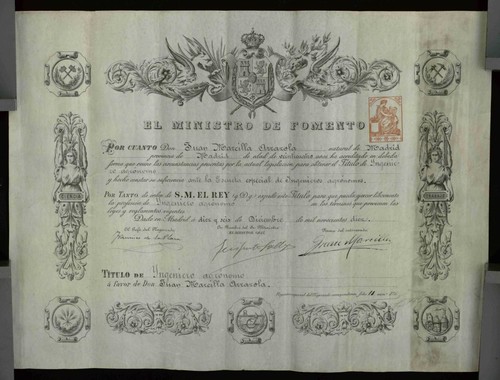 EL MINISTRO DE FOMENTO
POR CUANTO Don Juan Marcilla Arrazola natural de Madrid
provincia de Madrid de edad de veinticuatro años ha acreditado en debida
forma que reune las circunstancias prescritas por la actual legislacion para obtener el Título de Ingenie-
ro agrónomo
y hecho constar su suficiencia ante la Escuela especial de Ingenieros agrónomos.
POR TANTO de orden de S. M. EL REY (q. D. g.) expido este Título para que pueda ejercer libremente
la profesion de Ingeniero agrónomo en los términos que previenen las
leyes y reglamentos vigentes.
Dado en Madrid á diez y seis de Diciembre de mil novecientos diez.
El Jefe del Negociado
TÍTULO DE Ingeniero agrónomo
á favor de Don Juan Marcilla Arrazola.